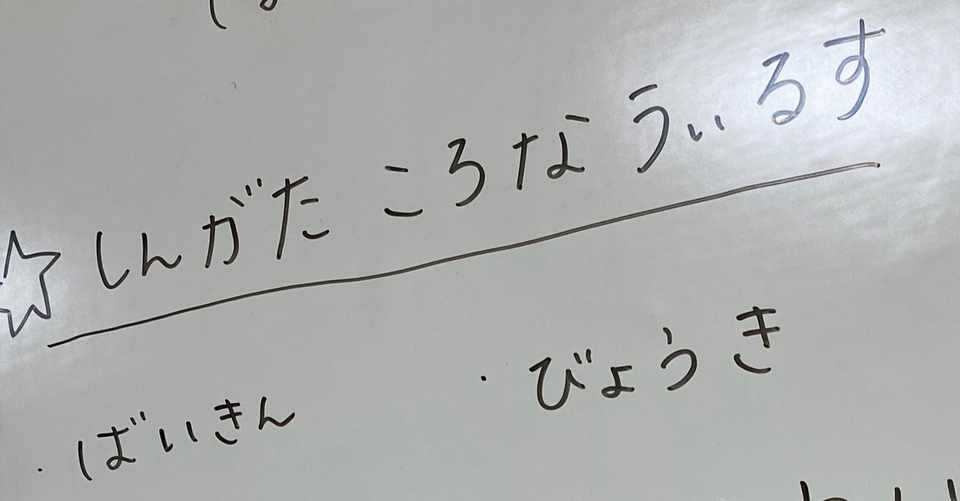 ☆しんがた ころなうぃるす
・ばいきん ・びょうき